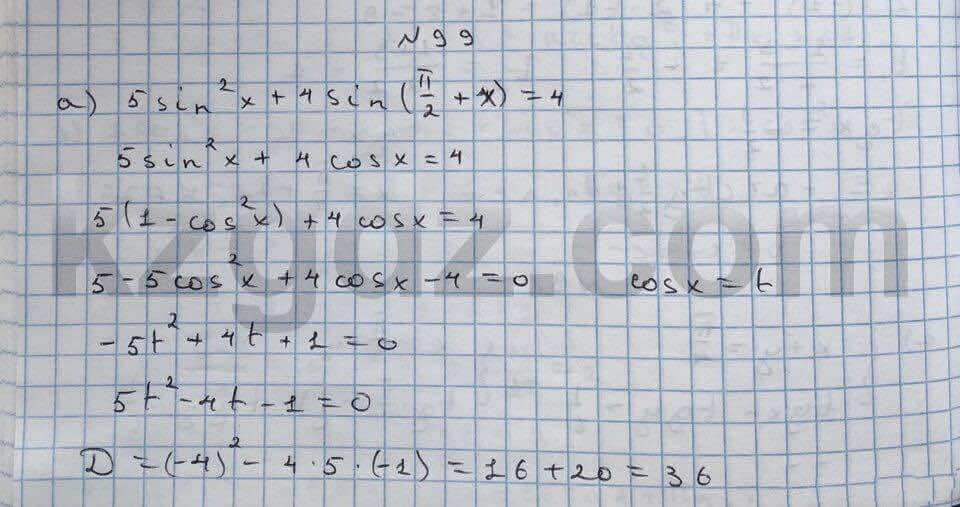 N 99
a) 5 sin²x + 4 sin (π/2 + x) = 4
5 sin²x + 4 cosx = 4
5 (1 - cos²x) + 4 cosx = 4
5 - 5 cos²x + 4 cosx - 4 = 0 cosx = t
- 5t² + 4t + 1 = 0
5t² - 4t - 1 = 0
D = (-4)² - 4 · 5 · (-1) = 16 + 20 = 36
kzgdz.com